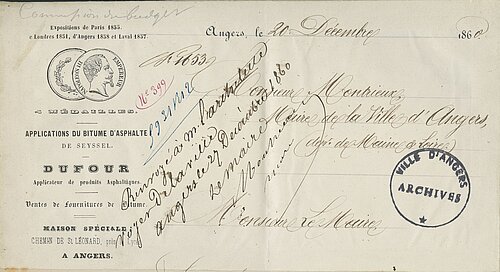 Commission du budget
Expositions de Paris 1855.
e Londres 1851, d'Angers 1858 et Laval 1857.
Angers, le 20 Décembre 1860
NAPOLEON III EMPEREUR
4 MÉDAILLES.
APPLICATIONS DU BITUME D'ASPHALTE
DE SEYSSEL.
DUFOUR
Applicateur de produits Asphaltiques.
Ventes de Fournitures de Bitume.
MAISON SPÉCIALE
CHEMIN DE St LÉONARD, près
A ANGERS.
N° 399
Monsieur Montrieux
Maire de la Ville d'Angers,
dépt de Maine & Loire
Renvoyé à M. l'architecte
Voyer
Angers le 27 Décembre 1860
Le maire
Montrieux
Monsieur Le Maire
VILLE D'ANGERS
ARCHIVES